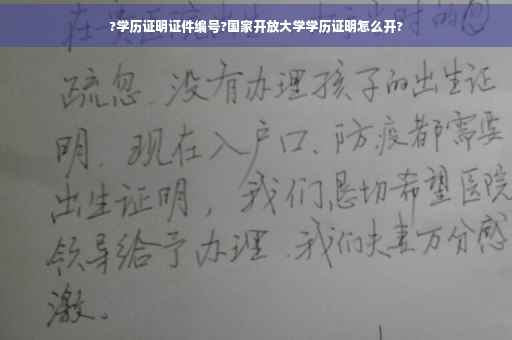 ?学历证明证件编号?国家开放大学学历证明怎么开?
疏忽、没有办理孩子的出生证
明、现在入户口、防疫都需要
出生证明，我们恳切希望医院
领导给予办理、我们夫妻万分感
激。